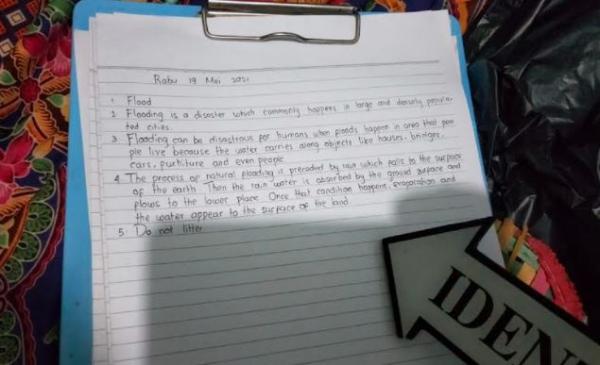 Rabu 19 Mei 2021
1. Flood
2. Flooding is a disaster which commonly happens in large and densely popula-
ted cities.
3. Flooding can be disastrous for humans when floods happen in area that peo
ple live because the water carries along objects like houses, bridges,
cars, furtniture and even people
4. The process of natural flooding is preceded by rain which falls to the surface
of the earth. Then the rain water is absorbed by the ground surface and
flows to the lower place. Once that condition happens, evaporation and
the water appear to the surface of the land.
5. Do not litter
IDEN